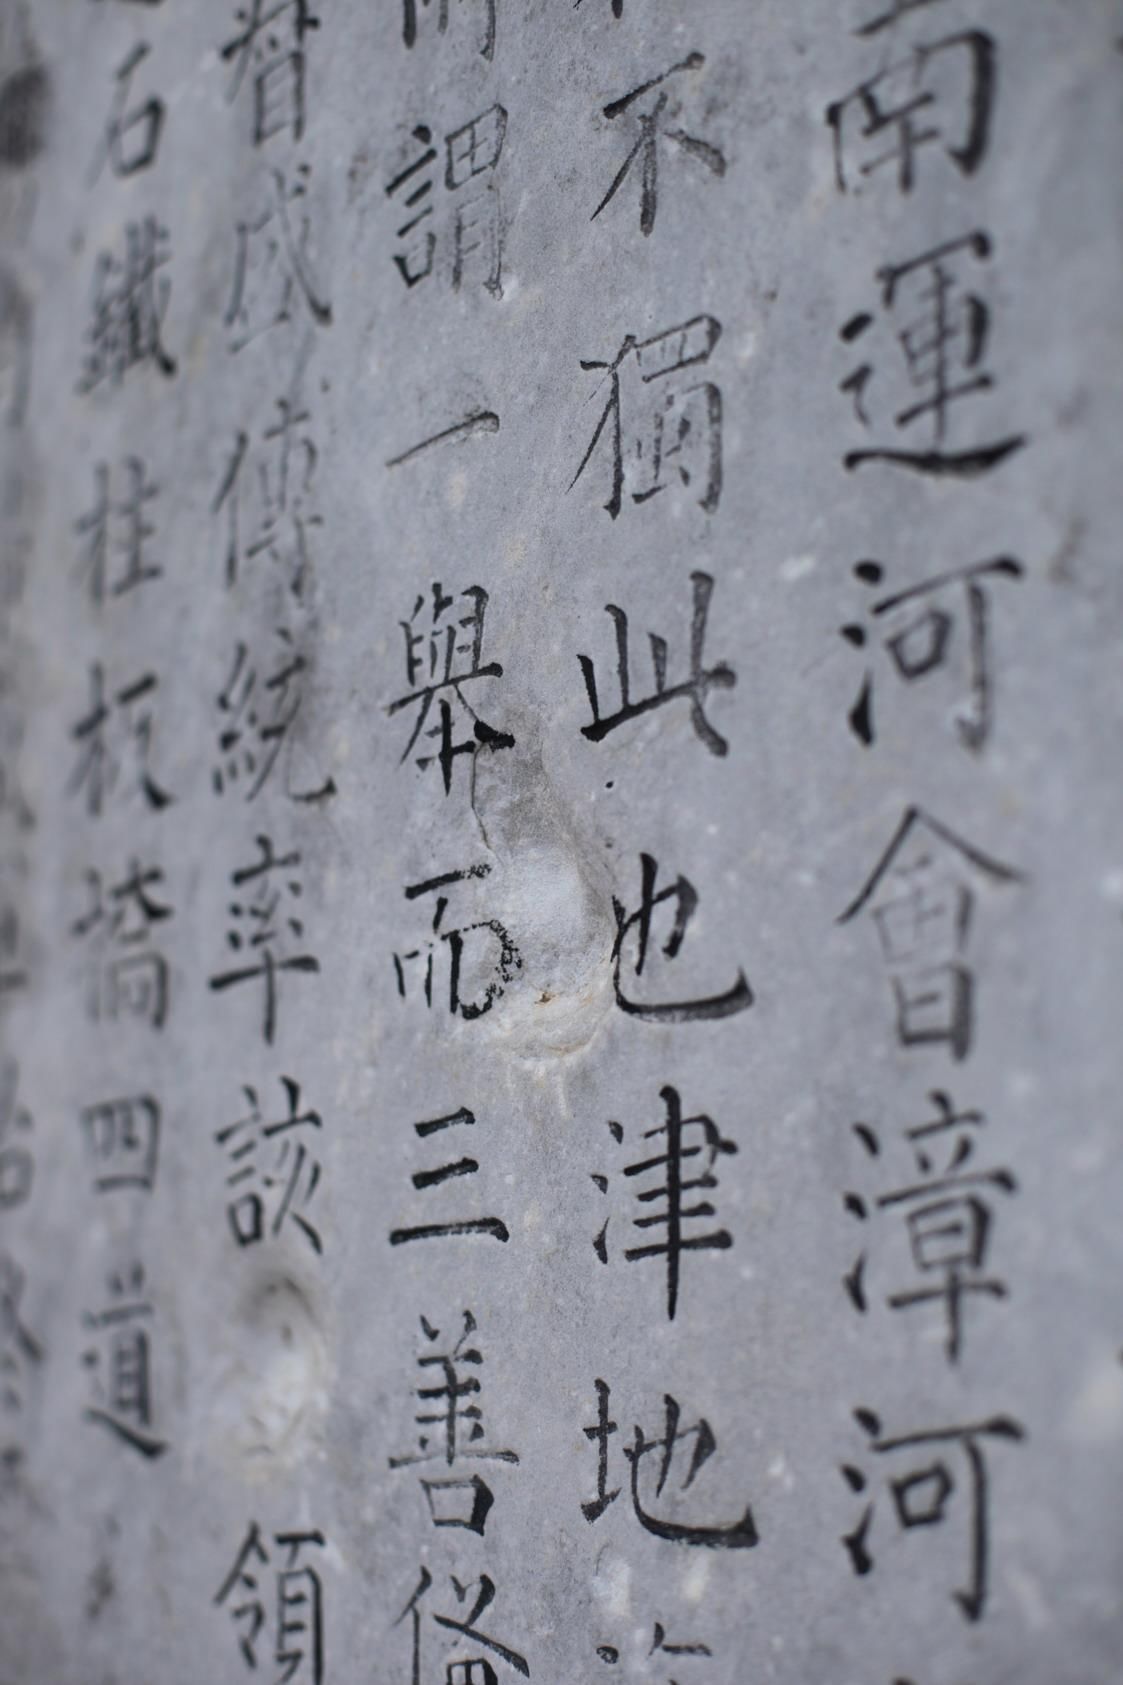 南運河會漳河
不獨此也津地
謂一舉而三善備
督成傳統率該領
石鐵柱板橋四道